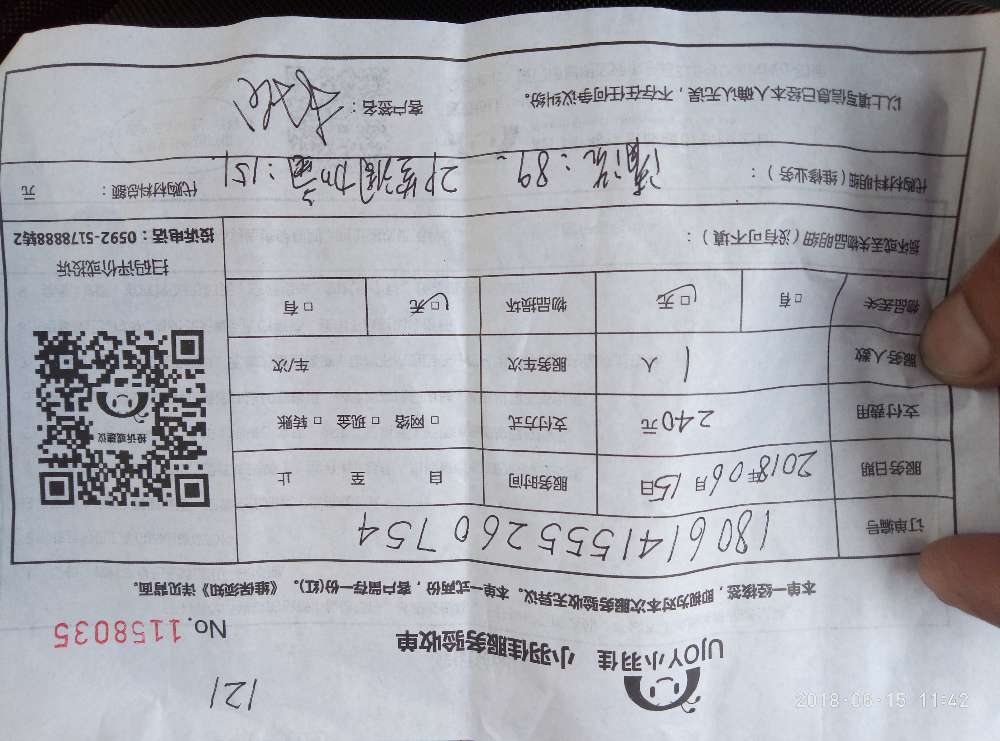 121
UJOY小羽佳 小羽佳服务验收单
No.1158035
本单一经接签，即视为对本次服务验收无异议。本单一式两份，客户留存一份(红)。《维保须知》详见背面。
订单编号 180614155526 0754
服务日期 2018年06月15日 服务时间： 自 至 止
支付费用 240元 支付方式 □网络 □现金 □转账
服务人数 1 人 服务车次 车/次
物品丢失 □有 □无 物品损坏 □无 □有
投诉或建议
扫码评价或投诉
投诉电话：0592-5178888转2
损坏或丢失物品明细(没有可不填)：
代购材料明细(维修业务)： 清洗：89、2P空调加氟：151 代购材料总额： 元
以上填写信息已经本人确认无误，不存在任何争议纠纷。 客户签名：
2018-06-15 11:42